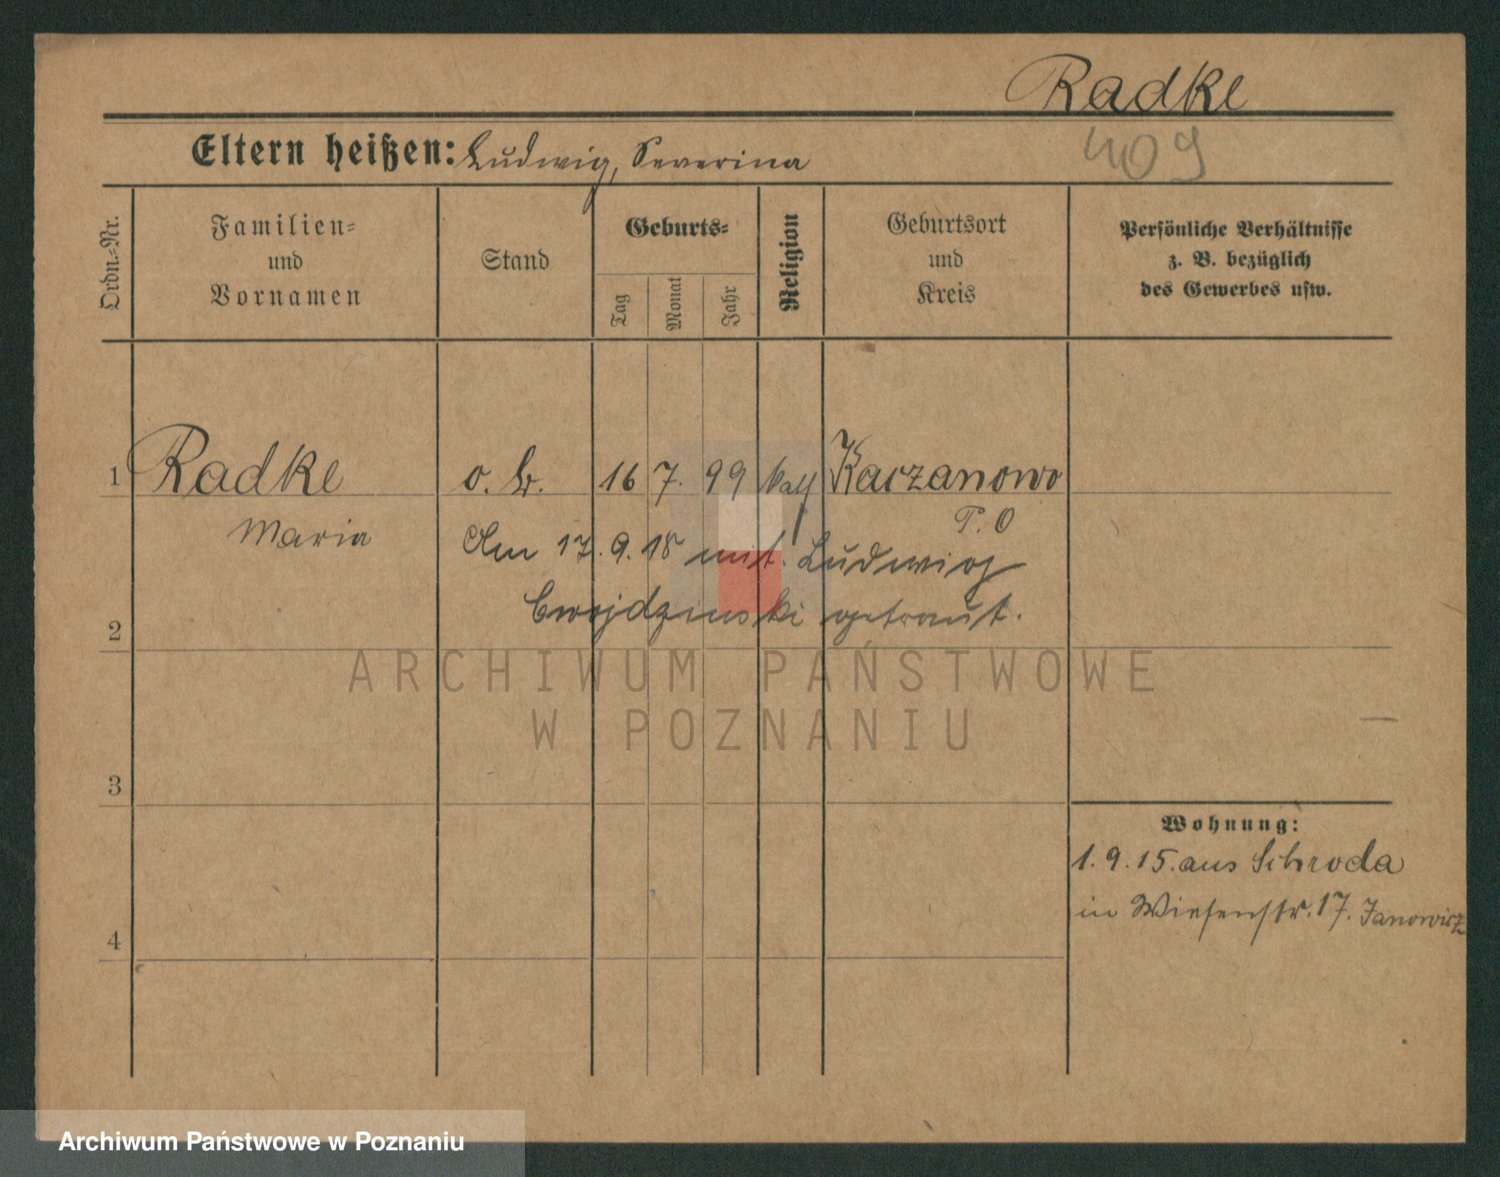 Radke
409
Eltern heißen: Ludwig, Severina
Ordn.=Nr.
Familien=
und
Vornamen
Stand
Geburts=
Tag
Monat
Jahr
Religion
Geburtsort
und
Kreis
Persönliche Verhältnisse
z. B. bezüglich
des Gewerbes usw.
1 Radke o. B. 16 7. 99 kath Kaczanowo
Maria P. O
Am 17. 9. 18 mit Ludwig
Cwojdzinski getraut.
2
ARCHIWUM PAŃSTWOWE
W POZNANIU
3
Wohnung:
1. 9. 15. aus Schroda
in Wiesenstr. 17. Janowicz
4
Archiwum Państwowe w Poznaniu